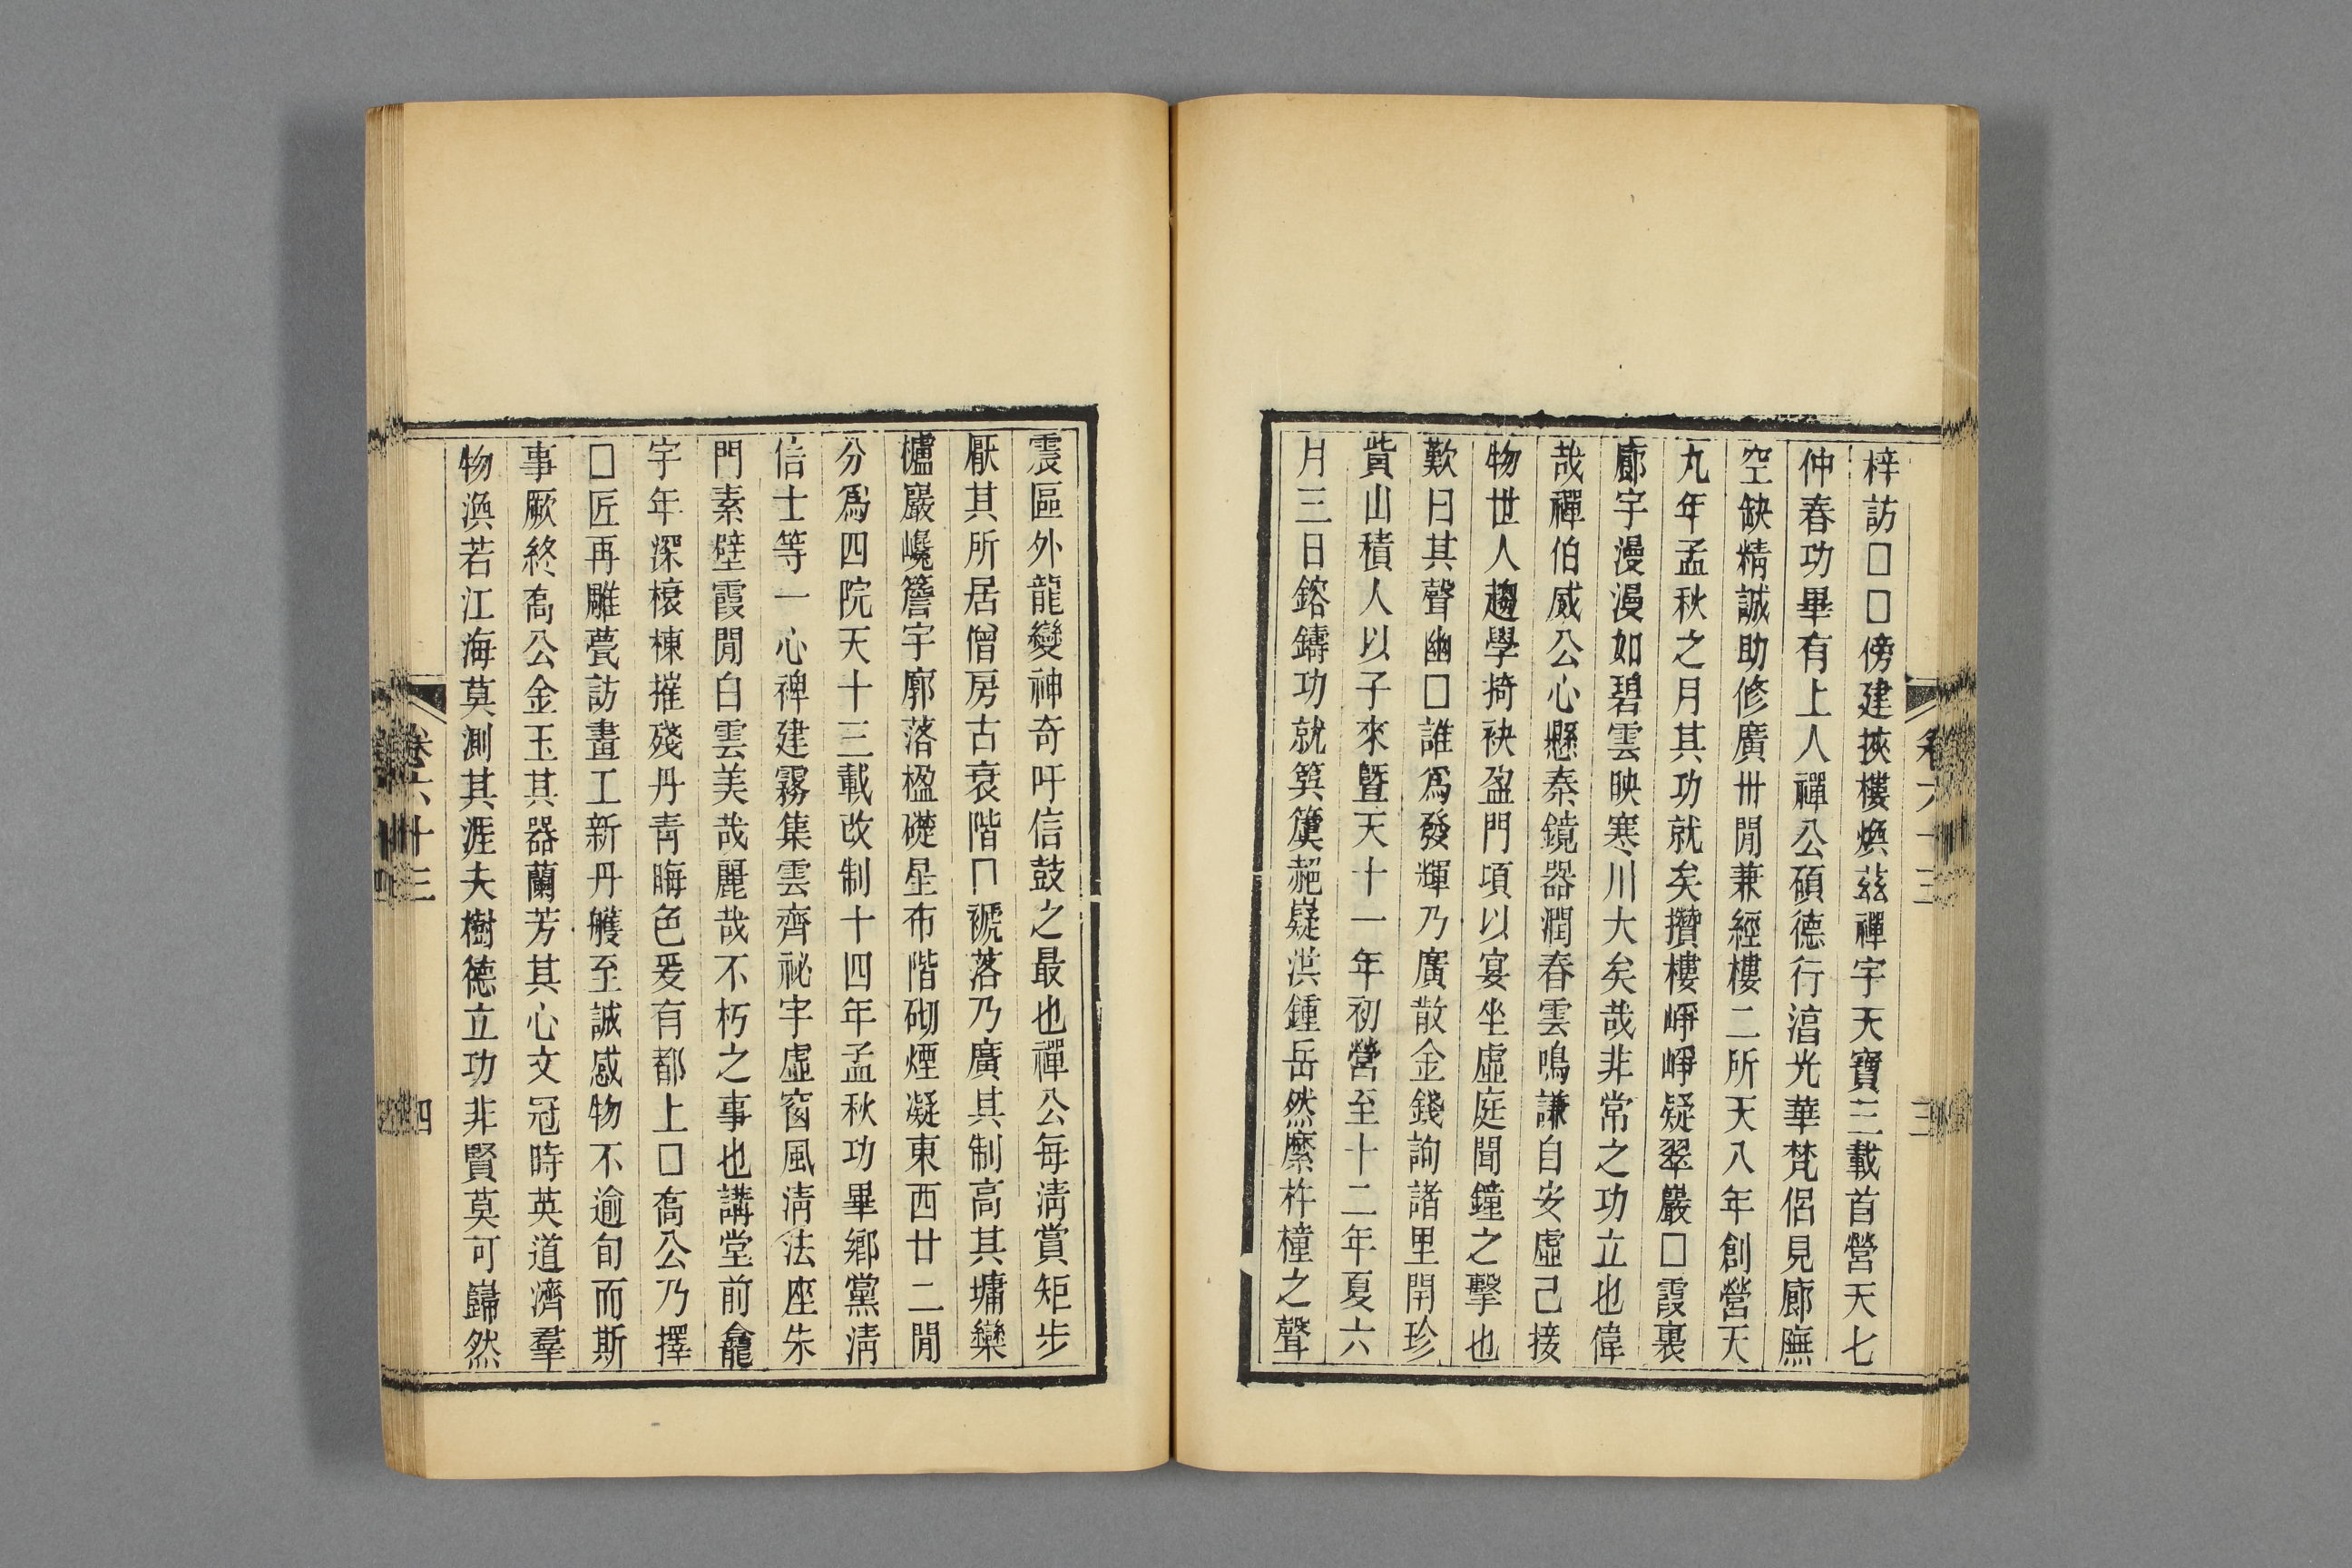 梓訪□□傍建挾樓煥茲禪宇天寶三載首營天七
仲春功畢有上人禪公碩德行湻光華梵侶見廊廡
空缺精誠助修廣卅閒兼經樓二所天八年創營天
九年孟秋之月其功就矣攢樓崢崢疑翠巖□霞裏
廊宇漫漫如碧雲映寒川大矣哉非常之功立也偉
哉禪伯威公心懸秦鏡器潤春雲鳴謙自安虛己接
物世人趨學摛袂盈門頃以宴坐虛庭聞鐘之擊也
歎曰其聲幽□誰爲發輝乃廣散金錢詢諸里閈珍
貲山積人以子來曁天十一年初營至十二年夏六
月三日鎔鑄功就筭簴赩嶷洪鍾岳然縻杵橦之聲
卷六十三
三
震區外龍變神奇吁信鼓之最也禪公每淸賞矩步
厭其所居僧房古衰階□褫落乃廣其制高其墉欒
櫨巖巉簷宇廓落楹礎星布階砌煙凝東西廿二閒
分爲四院天十三載改制十四年孟秋功畢鄉黨淸
信士等一心禆建霧集雲齊祕宇虛窗風淸法座朱
門素壁霞開白雲美哉麗哉不朽之事也講堂前龕
宇年深榱棟摧殘丹靑晦色爰有都上□喬公乃擇
□匠再雕甍訪畫工新丹艧至誠感物不逾旬而斯
事厥終喬公金玉其器蘭芳其心文冠時英道濟羣
物渙若江海莫測其涯夫樹德立功非賢莫可巋然
卷六十三
四